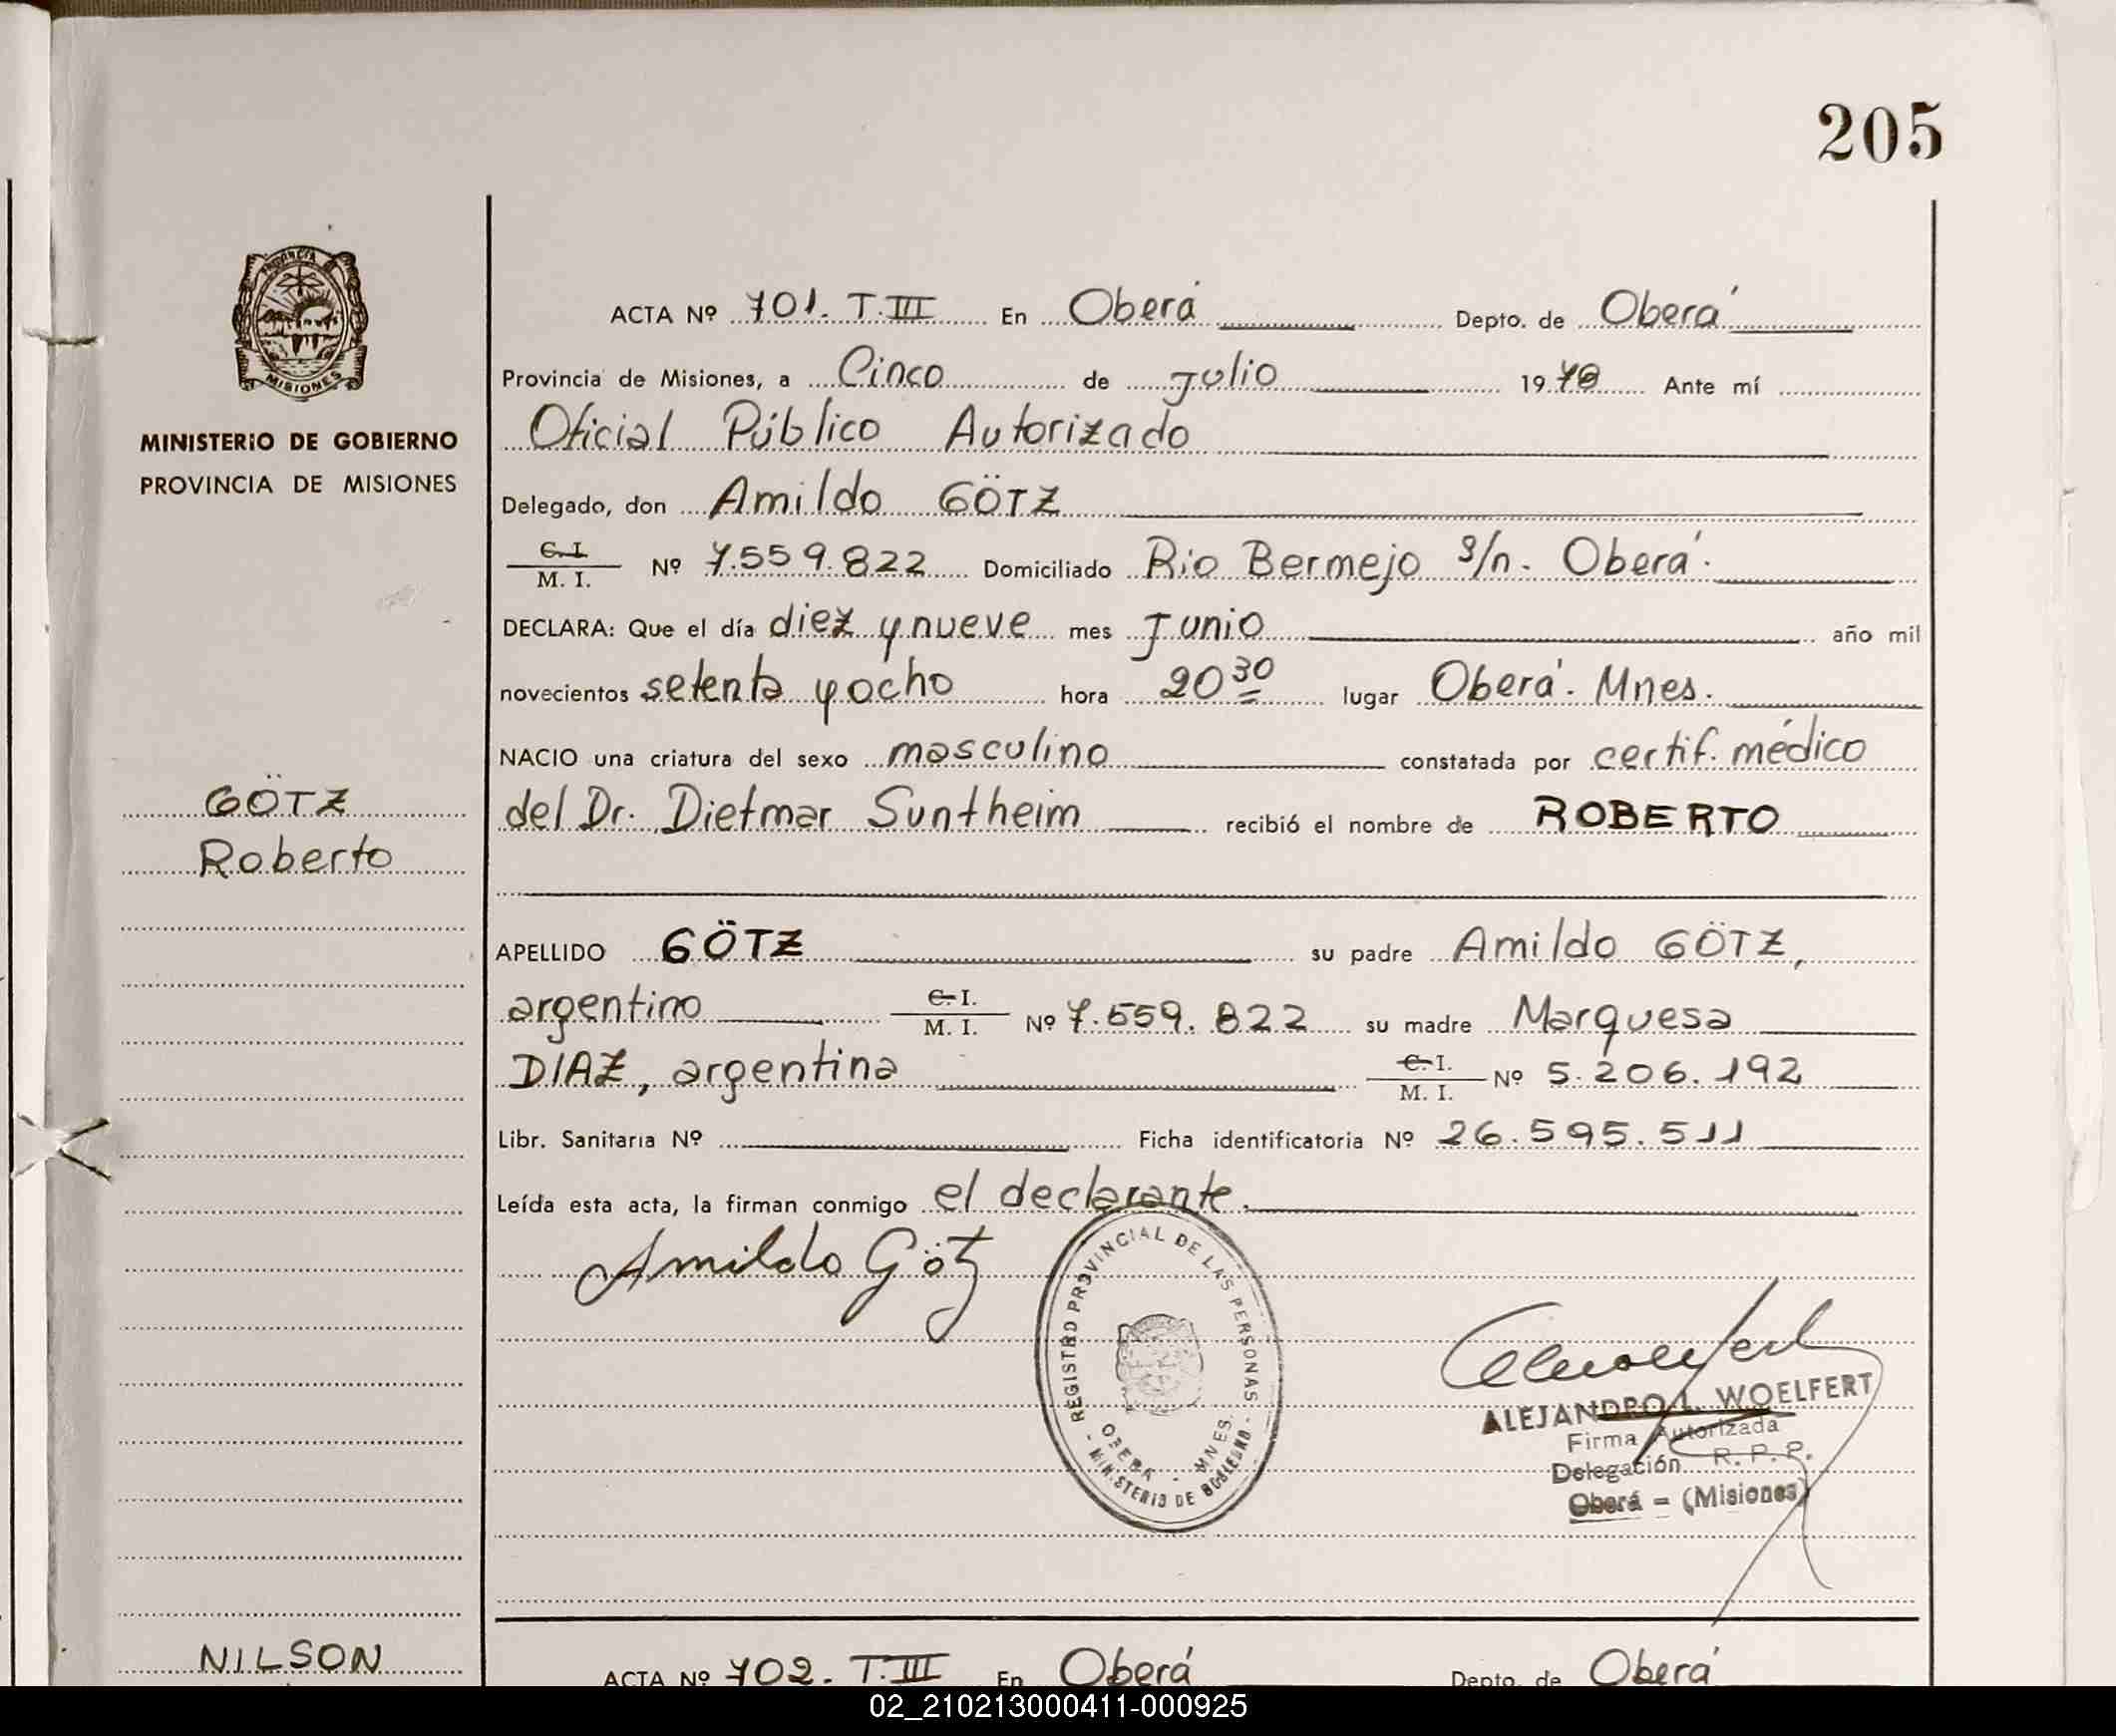 205
PROVINCIA
MISIONES
MINISTERIO DE GOBIERNO
PROVINCIA DE MISIONES
ACTA Nº 701. T.III En Oberá Depto. de Oberá
Provincia de Misiones, a Cinco de Julio 1978 Ante mí
Oficial Público Autorizado
Delegado, don Amildo GÖTZ
C. I.
M. I. Nº 7.559.822 Domiciliado Rio Bermejo s/n. Oberá.
DECLARA: Que el día diez y nueve mes Junio año mil
novecientos setenta y ocho hora 20 30 lugar Oberá. Mnes.
NACIO una criatura del sexo masculino constatada por certif. médico
del Dr. Dietmar Suntheim recibió el nombre de ROBERTO
GÖTZ
Roberto
APELLIDO GÖTZ su padre Amildo GÖTZ,
argentino C. I. M. I. Nº 7.559.822 su madre Marquesa
DIAZ, argentina C. I. M. I. Nº 5.206.192
Libr. Sanitaria Nº Ficha identificatoria Nº 26.595.511
Leída esta acta, la firman conmigo el declarante.
Amildo Götz
REGISTRO PROVINCIAL DE LAS PERSONAS
OBERA - MNES.
- MINISTERIO DE GOBIERNO -
ALEJANDRO L. WOELFERT
Firma Autorizada
Delegación R. P. P.
Oberá - (Misiones)
NILSON
ACTA Nº 702. T.III En Oberá Depto. de Oberá
02_210213000411-000925